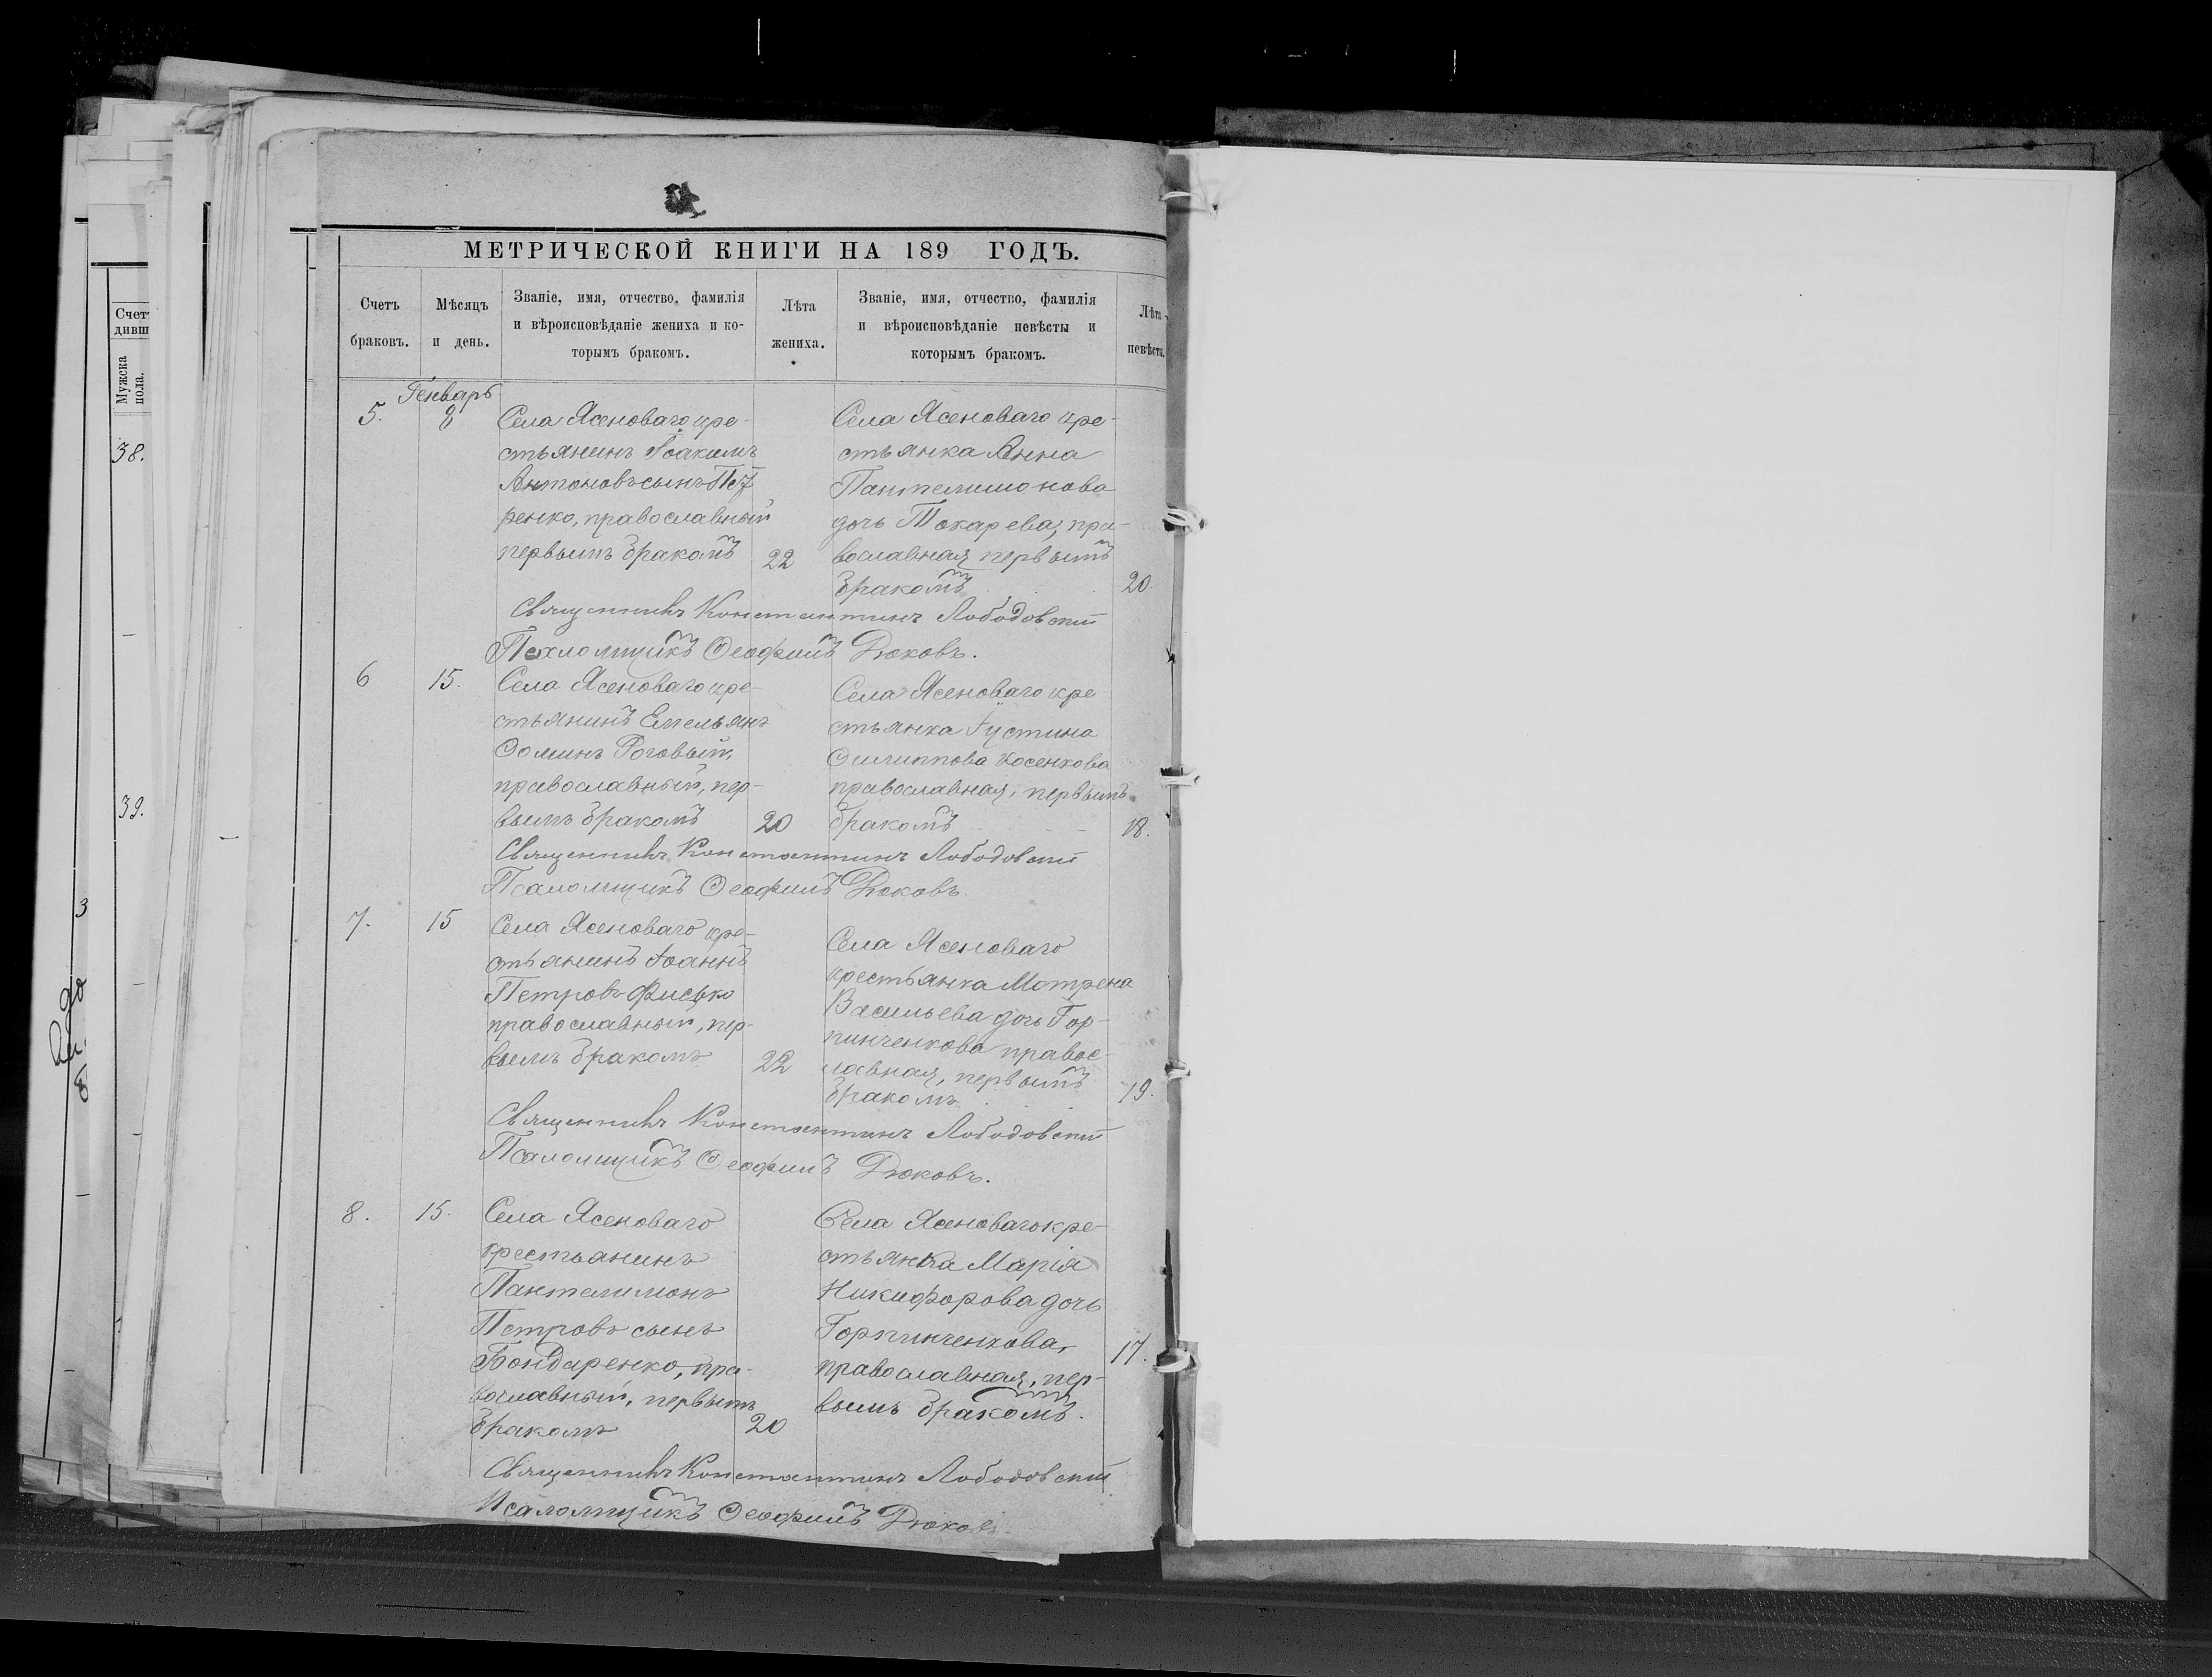 МЕТРИЧЕСКОЙ КНИГИ НА 189 ГОДЪ.
Счетъ браковъ.
Мѣсяцъ и день.
Званіе, имя, отчество, фамилія
и вѣроисповѣданіе жениха и ко-
торымъ бракомъ.
Лѣта жениха.
Званіе, имя, отчество, фамилія
и вѣроисповѣданіе невѣсты и
которымъ бракомъ.
Лѣта невѣсты.
Счет
дивш
Мужска
пола.
38.
39.
3
Генварь
5.
8
Села Ясеноваго кре-
стьянинъ Іоакимъ
Антоновъ сынъ
ренко, православный
первымъ бракомъ
22
Села Ясеноваго кре-
стьянка Анна
Пантелимонова
дочь Токарева, пра-
вославная первымъ
бракомъ
20.
Священникъ Константинъ Лободовскій
Псаломщикъ Ѳеофилъ Дюковъ.
6
15.
Села Ясеноваго кре-
стьянинъ Емельянъ
Ѳоминъ Роговый,
православный, пер-
вымъ бракомъ
20
Села Ясеноваго кре-
стьянка Іустина
Филиппова Косенкова
православная, первымъ
бракомъ
18.
Священникъ Константинъ Лободовскій
Псаломщикъ Ѳеофилъ Дюковъ
7.
15
Села Ясеноваго кре-
стьянинъ Іоаннъ
Петровъ Фисько
православный, пер-
вымъ бракомъ
22
Села Ясеноваго
крестьянка Мотрена
Васильева дочь Гор-
пинченкова правос-
лавная, первымъ
бракомъ
19.
Священникъ Константинъ Лободовскій
Псаломщикъ Ѳеофилъ Дюковъ.
8.
15.
Села Ясеноваго
крестьянинъ
Пантелимонъ
Петровъ сынъ
Бондаренко, пра-
вославный, первымъ
бракомъ
20
Села Ясеноваго кре-
стьянка Марія
Никифорова дочь
Горпинченкова,
православная, пер-
вымъ бракомъ.
17.
Священникъ Константинъ Лободовскій
Псаломщикъ Ѳеофилъ Дюковъ.